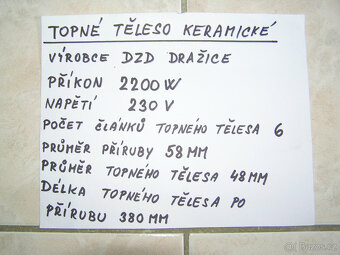 TOPNÉ TĚLESO KERAMICKÉ
VÝROBCE DZD DRAŽICE
PŘÍKON 2200W
NAPĚTÍ 230 V
POČET ČLÁNKŮ TOPNÉHO TĚLESA 6
PRŮMĚR PŘÍRUBY 58MM
PRŮMĚR TOPNÉHO TĚLESA 48MM
DÉLKA TOPNÉHO TĚLESA PO
PŘÍRUBU 380MM
Bazos.cz